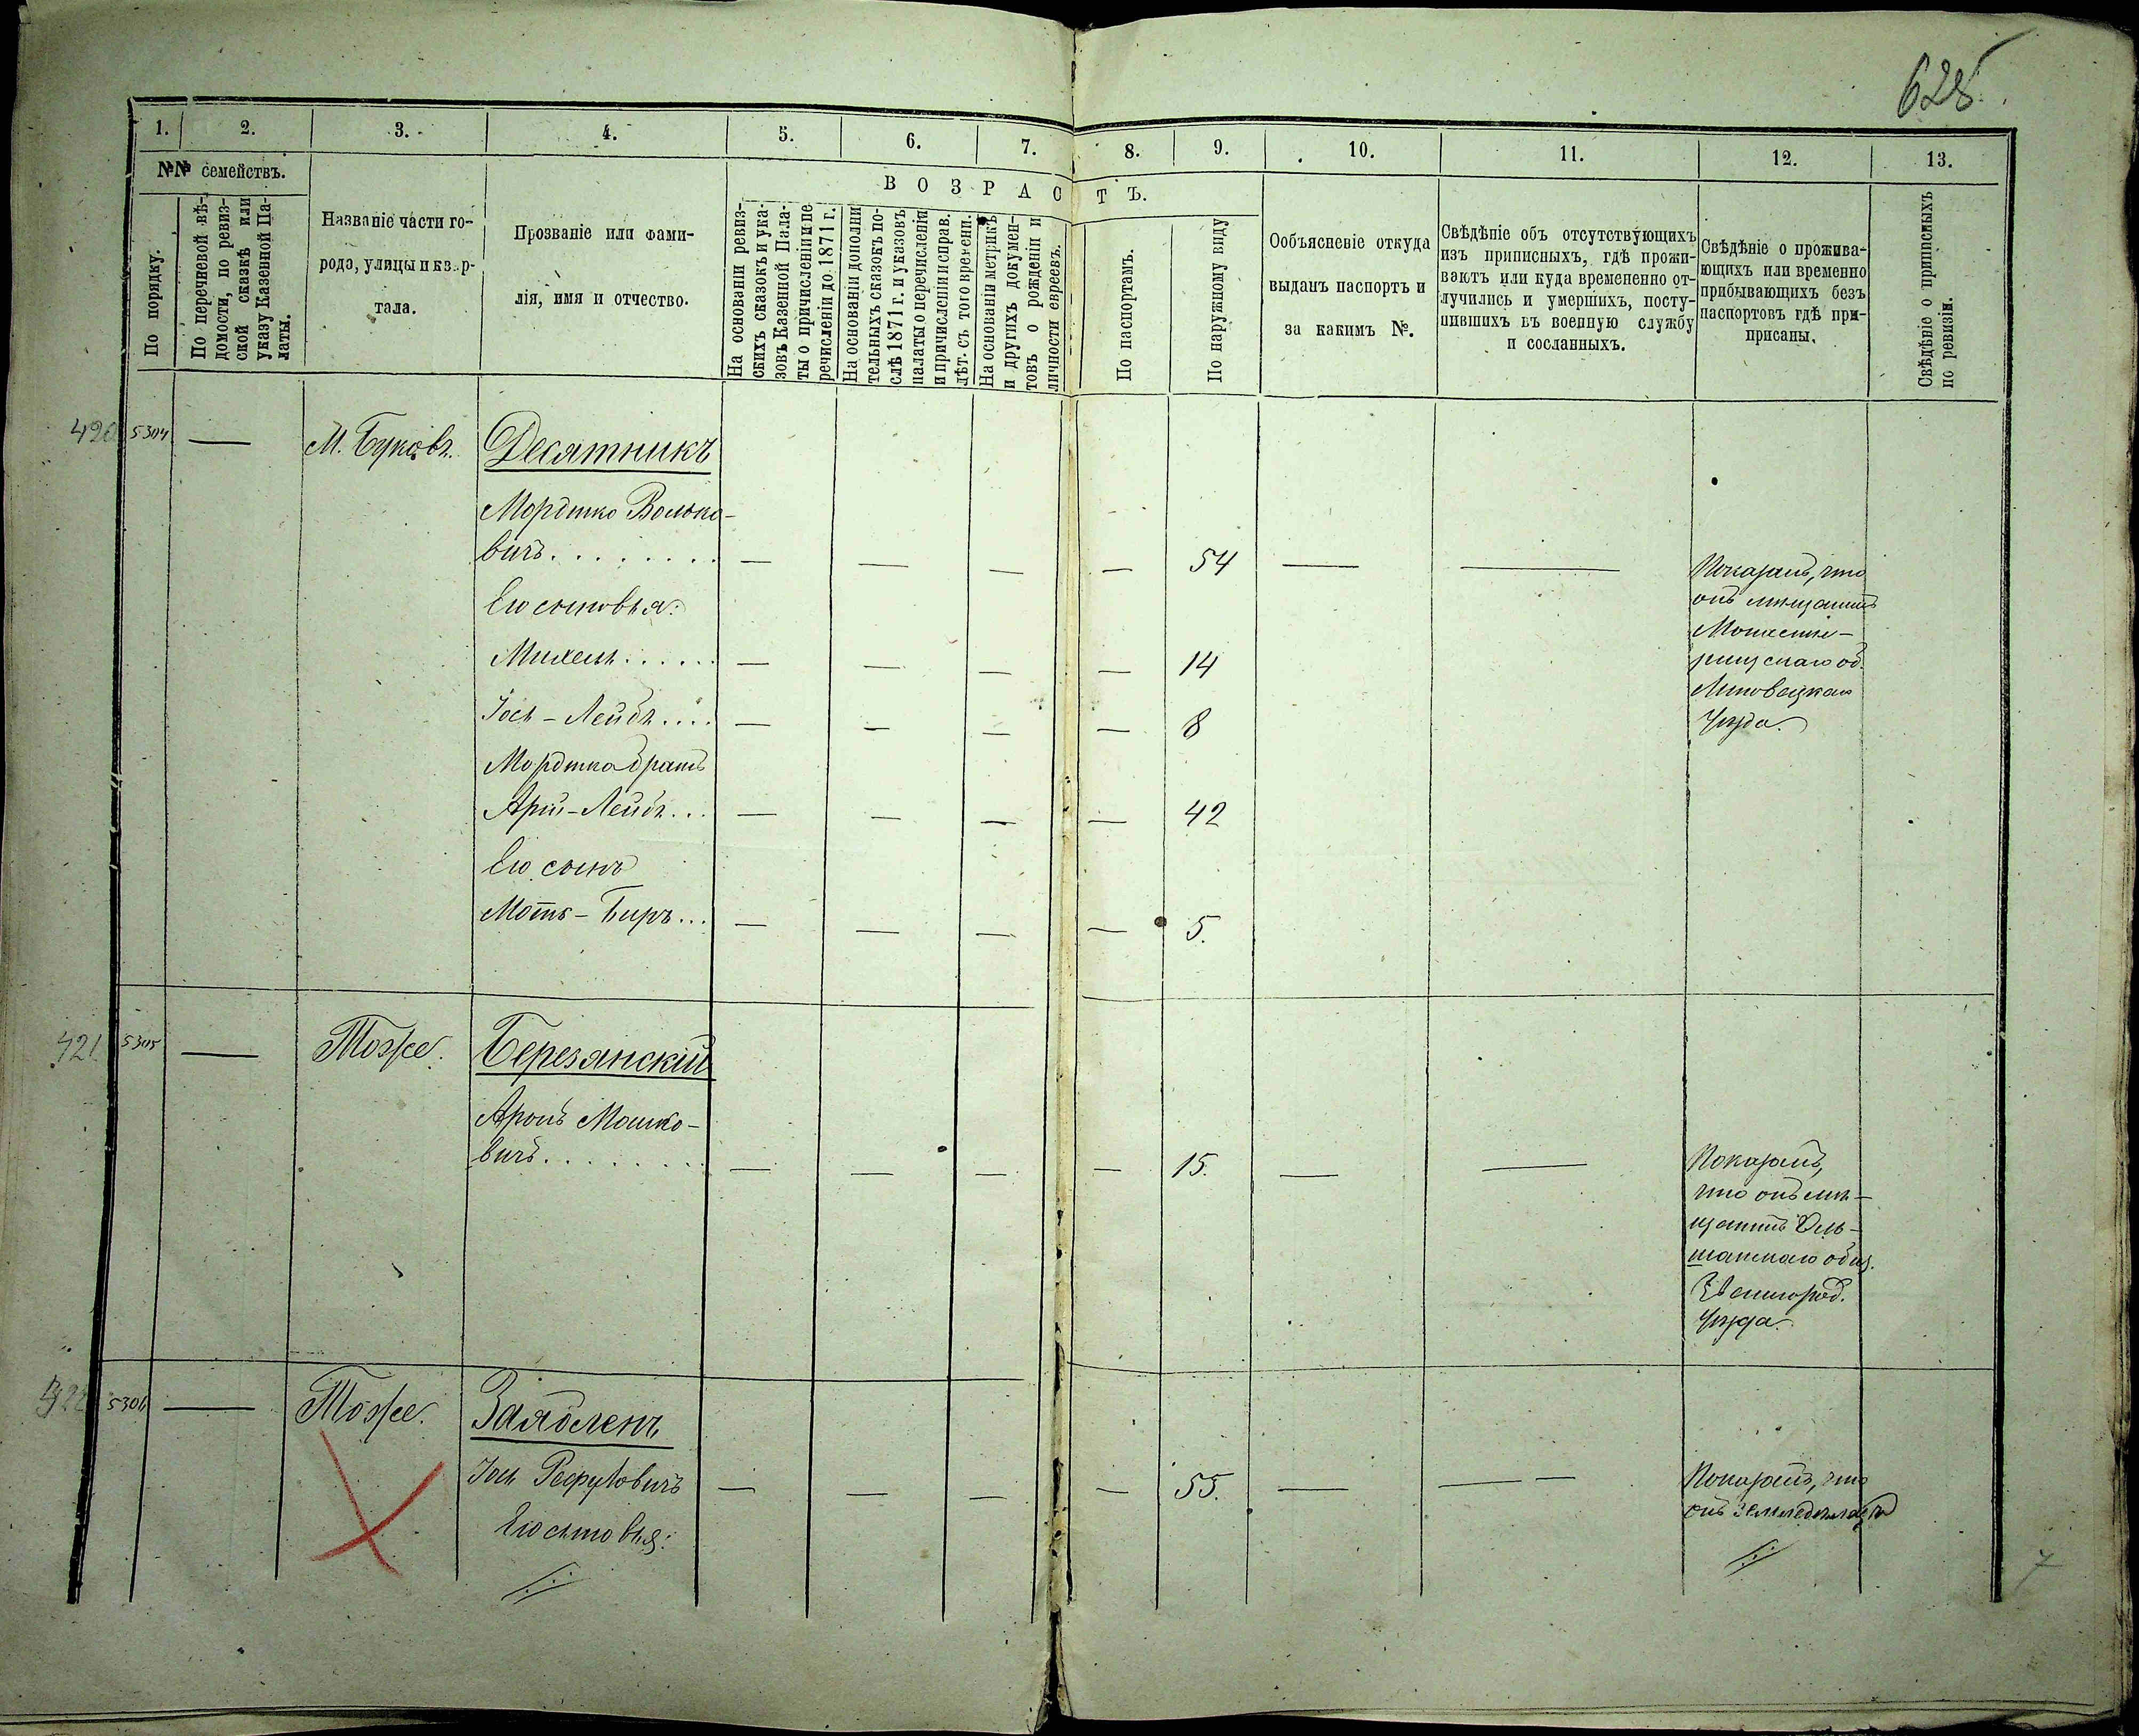 625
1. 2. 3. 4. 5. 6. 7. 8. 9. 10. 11. 12. 13.
№№ семействъ.
По порядку.
По перечневой вѣ-
домости, по ревиз-
ской сказкѣ или
указу Казенной Па-
латы.
Названіе части го-
рода, улицы и квар-
тала.
Прозваніе или фами-
лія, имя и отчество.
ВОЗРАСТЪ.
На основаніи ревиз-
скихъ сказокъ и ука-
зовъ Казенной Пала-
ты о причисленіи и пе
речисленіи до 1871 г.
На основаніи дополни
тельныхъ сказокъ по-
слѣ 1871 г. и указовъ
палаты о перечисленіи
и причисленіи и справ.
лѣт. съ того времени.
На основаніи метрикъ
и другихъ докумен-
товъ о рожденіи и
личности евреевъ.
По паспортамъ.
По наружному виду
Ообъясненіе откуда
выданъ паспортъ и
за какимъ №.
Свѣдѣніе объ отсутствующихъ
изъ приписныхъ, гдѣ прожи-
ваютъ или куда временно от-
лучились и умершихъ, посту-
пившихъ въ военную службу
и сосланныхъ.
Свѣдѣніе о прожива-
ющихъ или временно
прибывающихъ безъ
паспортовъ гдѣ при-
писаны.
Свѣдѣніе о приписныхъ
по ревизіи.
420 5304 — М. Буковъ. Десятникъ
Мордтко Волько-
вичъ — — — — 54 — —
Его сыновья:
Михель — — — — 14
Іось-Лейбъ — — — — 8
Мордтка братъ
Арій-Лейбъ — — — — 42
Его сынъ
Мотъ-Беръ — — — — 5.
Показалъ, что
онъ мѣщанинъ
Монасты-
рищскаго об.
Липовецкаго
Уѣзда.
421 5305 — Тоже. Березянскій
Аронъ Мошко-
вичъ — — — — 15. — —
Показалъ,
что онъ мѣ-
щанинъ Оль-
шанскаго общ.
Звенигород.
Уѣзда.
5306 — Тоже.
Іось — — — — 55. — —
Его сыновья:
Показалъ, что
онъ земледѣлецъ